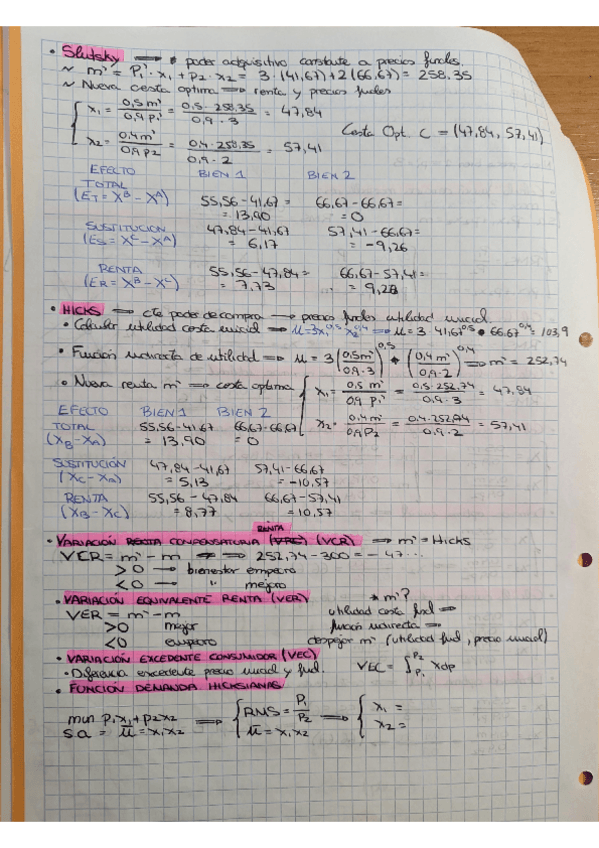 • Slutsky ⟹ • poder adquisitivo constante a precios finales.
~ m' = P₁' · x₁ + P₂ · x₂ = 3 · (41,67) + 2 (66,67) = 258,35
~ Nueva cesta optima ⟹ renta y precios finales
x₁ = 0,5 m' / 0,9 P₁' = 0,5 · 258,35 / 0,9 · 3 = 47,84
x₂ = 0,4 m' / 0,9 P₂ = 0,4 · 258,35 / 0,9 · 2 = 57,41
Cesta Opt. C = (47,84, 57,41)
EFECTO BIEN 1 BIEN 2
TOTAL
(ET = Xᴮ - Xᴬ) 55,56 - 41,67 = 66,67 - 66,67 =
= 13,90 = 0
SUSTITUCION 47,84 - 41,67 57,41 - 66,67 =
(Es = Xᶜ - Xᴬ) = 6,17 = -9,26
RENTA 55,56 - 47,84 = 66,67 - 57,41 =
(ER = Xᴮ - Xᶜ) = 7,73 = 9,26
• HICKS ⟹ cte poder de compra ⟶ precios finales utilidad inicial.
• Calcular utilidad cesta inicial ⟹ u = 3x₁^0,5 x₂^0,4 ⟹ u = 3 · 41,67^0,5 • 66,67^0,4 = 103,9
• Función indirecta de utilidad ⟹ u = 3 (0,5m' / 0,9 · 3)^0,5 * (0,4 m' / 0,9 · 2)^0,4 ⟹ m' = 252,74
• Nueva renta m' ⟹ cesta optima
x₁ = 0,5 m' / 0,9 P₁' = 0,5 · 252,74 / 0,9 · 3 = 47,84
x₂ = 0,4 m' / 0,9 P₂ = 0,4 · 252,74 / 0,9 · 2 = 57,41
EFECTO BIEN 1 BIEN 2
TOTAL 55,56 - 41,67 66,67 - 66,67
(XB - XA) = 13,90 = 0
SUSTITUCIÓN 47,84 - 41,67 57,41 - 66,67
(XC - XA) = 5,13 = -10,57
RENTA 55,56 - 47,84 66,67 - 57,41
(XB - XC) = 8,77 = 10,57
RENTA
• VARIACIÓN RENTA COMPENSATORIA (VRC) (VCR) ⟹ m' = Hicks
VCR = m' - m ⟹ 252,74 - 300 = - 47...
> 0 ⟶ bienestar empeora
< 0 ⟶ " mejora
• VARIACIÓN EQUIVALENTE RENTA (VER)
* m'?
VER = m' - m
utilidad cesta final ⟹
> 0 mejor
función indirecta ⟹
< 0 empeora
despejar m' (utilidad final, precio inicial)
• VARIACIÓN EXCEDENTE CONSUMIDOR (VEC)
• Diferencia excedente precio inicial y final.
VEC = ∫ P₁ P₂ X dp
• FUNCION DEMANDA HICKSIANAS
min P₁x₁ + P₂x₂ ⟹ RMS = P₁ / P₂ ⟹ x₁ =
s.a = ū = x₁x₂ ū = x₁x₂ x₂ =